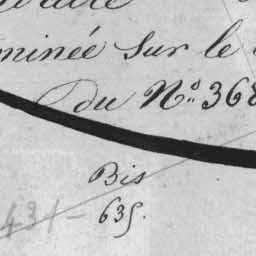 minée sur le
du N.º 368
Bis
635.
431 –